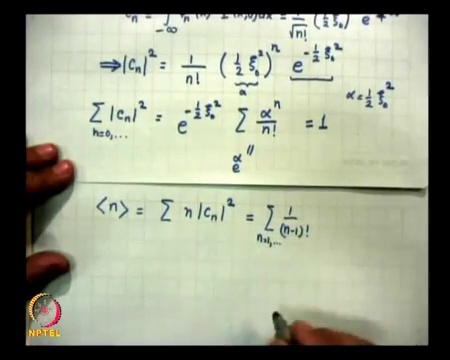 Cₙ = ∫ dx = 1/√n! (1/2 ξ₀²) e
⇒ |Cₙ|² = 1/n! (1/2 ξ₀²)ⁿ e^{-1/2 ξ₀²}
α α = 1/2 ξ₀²
∑_{n=0,...} |Cₙ|² = e^{-1/2 ξ₀²} ∑ αⁿ/n! = 1
e^α
⟨n⟩ = ∑ n |Cₙ|² = ∑_{n=1,...} 1/(n-1)!
NPTEL